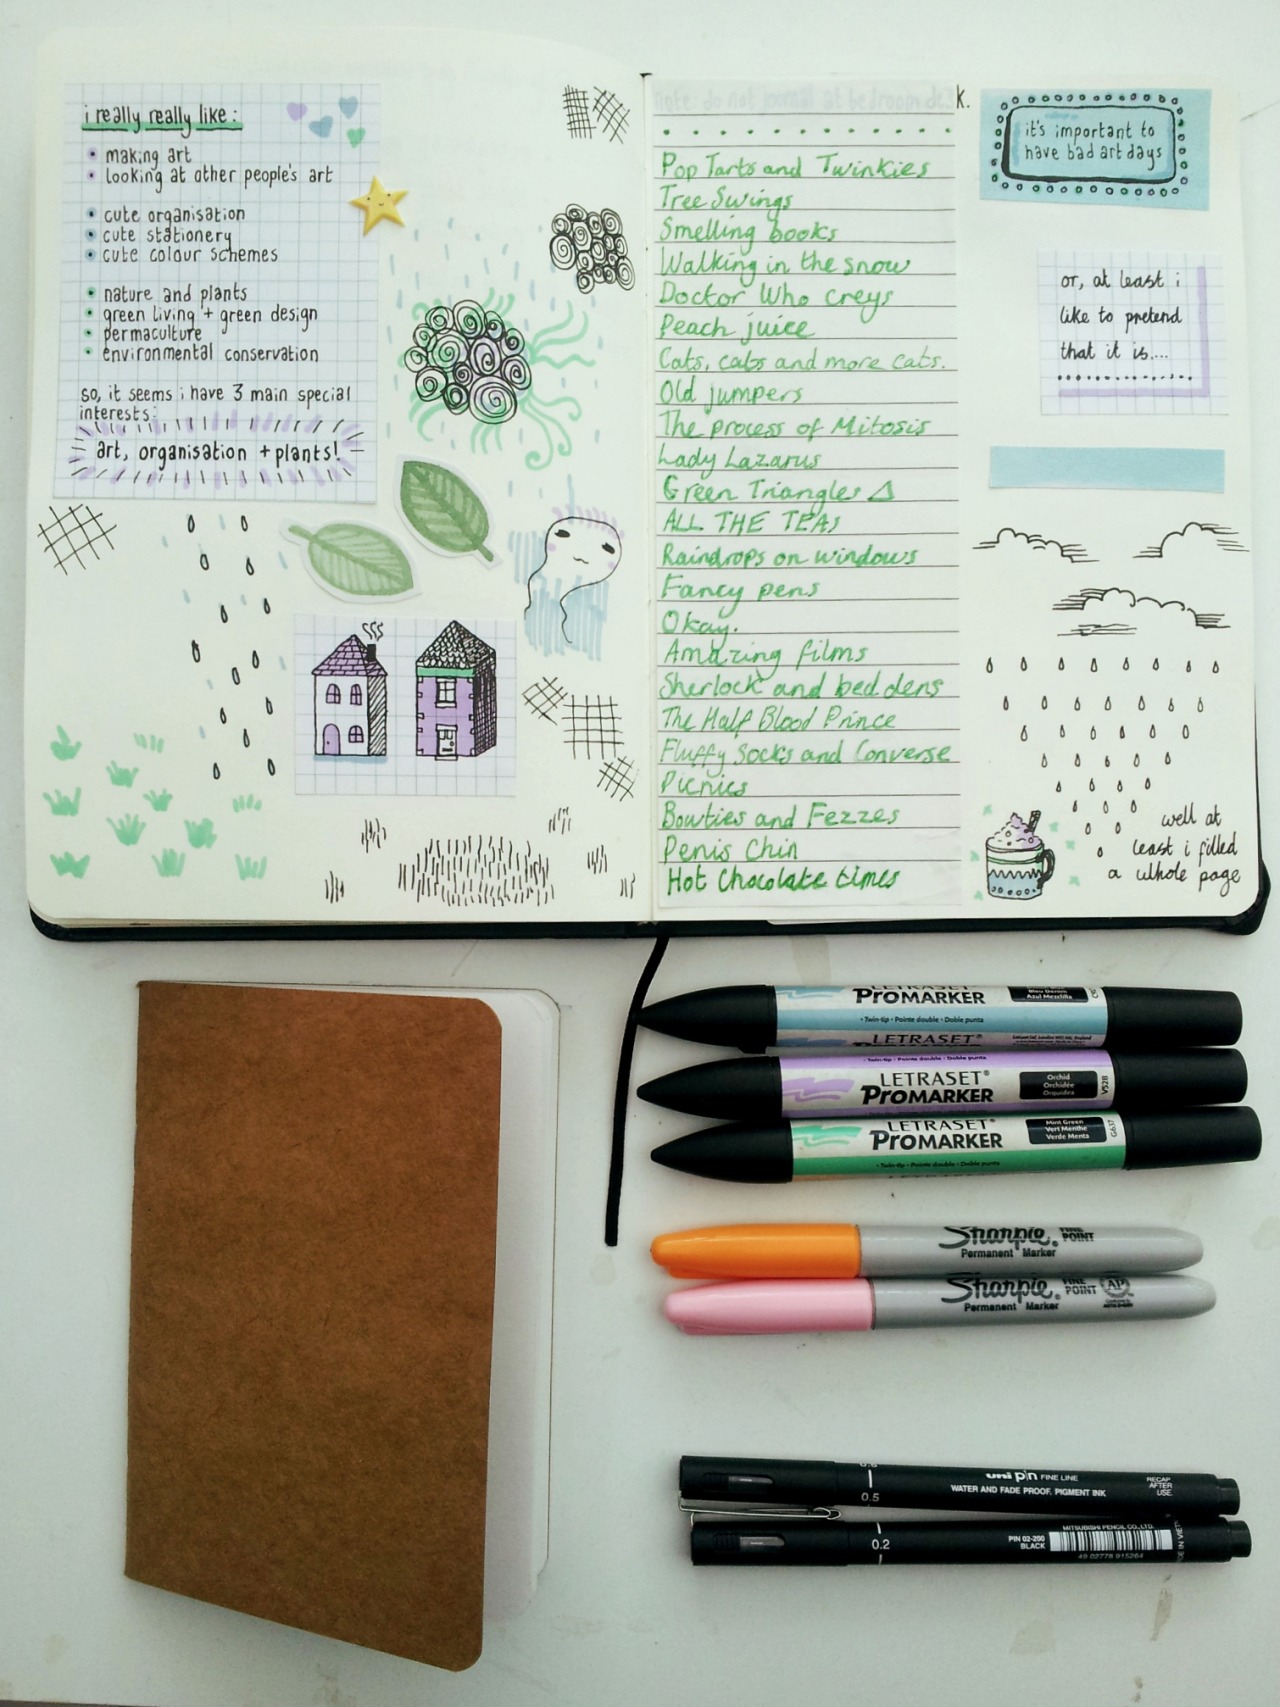 i really really like:
• making art
• looking at other people's art
• cute organisation
• cute stationery
• cute colour schemes
• nature and plants
• green living + green design
• permaculture
• environmental conservation
so, it seems i have 3 main special
interests:
art, organisation + plants!
note: do not journal at bedroom des k.
Pop Tarts and Twinkies
Tree Swings
Smelling books
Walking in the snow
Doctor Who creys
Peach juice
Cats, cats and more cats.
Old jumpers
The process of Mitosis
Lady Lazarus
Green Triangles
ALL THE TEAS
Raindrops on windows
Fancy pens
Okay.
Amazing films
Sherlock and bed dens
The Half Blood Prince
Fluffy Socks and Converse
Picnics
Bowties and Fezzes
Penis Chin
Hot Chocolate times
it's important to
have bad art days
or, at least i
like to pretend
that it is....
well at
least i filled
a whole page
LETRASET
PROMARKER
Bleu Denim
Azul Mezclilla
• Twin-tip • Pointe double • Doble punta
LETRASET
• Twin-tip • Pointe double • Doble punta
LETRASET®
PROMARKER
Orchid
Orchidée
Orquídea
V528
LETRASET®
PROMARKER
Mint Green
Vert Menthe
Verde Menta
G637
• Twin-tip • Pointe double • Doble punta
Sharpie. FINE POINT
Permanent Marker
Sharpie. FINE POINT AP
Permanent Marker
0.5
uni pin FINE LINE
WATER AND FADE PROOF, PIGMENT INK
RECAP
AFTER
USE.
0.2
PIN 02-200
BLACK
MITSUBISHI PENCIL CO., LTD.
49 02778 915264